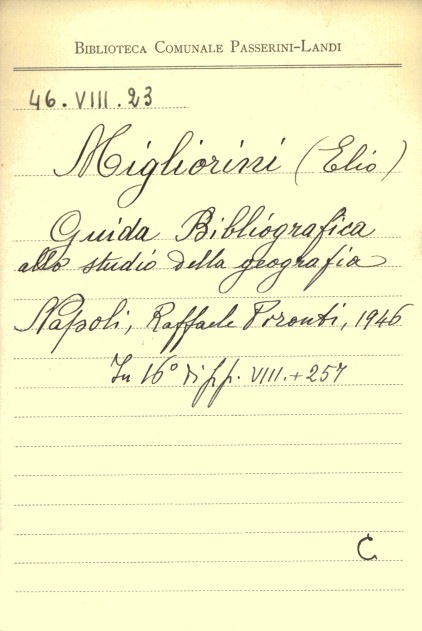 BIBLIOTECA COMUNALE PASSERINI-LANDI
46. VIII. 23
Migliorini (Elio)
Guida Bibliografica
allo studio della geografia
Napoli, Raffaele Pironti, 1946
In 16° di pp. VIII.+257
C